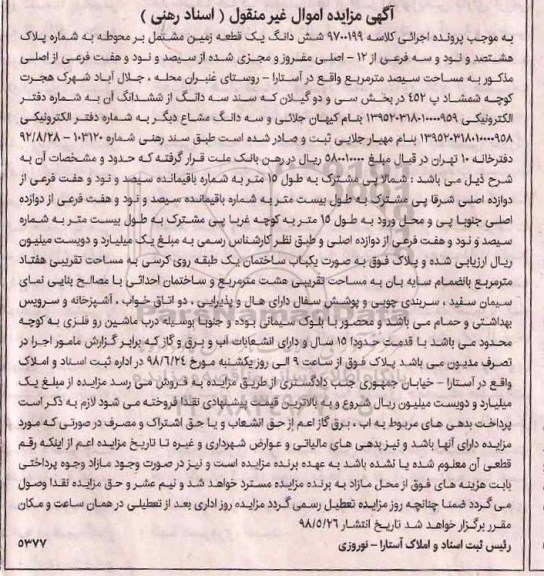 آگهی مزایده اموال غیر منقول ( اسناد رهنی )
به موجب پرونده اجرائی کلاسه ۹۷۰۰۱۹۹ شش دانگ یک قطعه زمین مشتمل بر محوطه به شماره پلاک
هشتصد و نود و سه فرعی از ۱۲ - اصلی مفروز و مجزی شده از سیصد و نود و هفت فرعی از اصلی
مذکور به مساحت سیصد مترمربع واقع در آستارا - روستای عنبران محله ، جلال آباد شهرک هجرت
کوچه شمشاد پ ۴۵۲ در بخش سی و دو گیلان که سند سه دانگ از ششدانگ آن به شماره دفتر
الکترونیکی ۱۳۹۵۲۰۳۱۸۰۱۰۰۰۰۹۵۹ بنام کیهان جلائی و سه دانگ مشاع دیگر به شماره دفتر الکترونیکی
۱۳۹۵۲۰۳۱۸۰۱۰۰۰۰۹۵۸ بنام مهیار جلایی ثبت و صادر شده است طبق سند رهنی شماره ۱۰۳۱۲۰ - ۹۲/۸/۲۸
دفترخانه ۱۰ تهران در قبال مبلغ ۵۸۰۰۱۰۰۰۰ ریال در رهن بانک ملت قرار گرفته که حدود و مشخصات آن به
شرح ذیل می باشد : شمالا پی مشترک به طول ۱۵ متر به شماره باقیمانده سیصد و نود و هفت فرعی از
دوازده اصلی شرقا پی مشترک به طول بیست متر به شماره باقیمانده سیصد و نود و هفت فرعی از دوازده
اصلی جنوبا پی و محل ورود به طول ۱۵ متر به کوچه غربا پی مشترک به طول بیست متر به شماره
سیصد و نود و هفت فرعی از دوازده اصلی و طبق نظر کارشناس رسمی به مبلغ یک میلیارد و دویست میلیون
ریال ارزیابی شده و پلاک فوق به صورت یکباب ساختمان یک طبقه روی کرسی به مساحت تقریبی هفتاد
مترمربع بانضمام سایه بان به مساحت تقریبی هشت مترمربع و ساختمان احداثی با مصالح بنایی نمای
سیمان سفید ، سربندی چوبی و پوشش سفال دارای هال و پذیرایی ، دو اتاق خواب ، آشپزخانه و سرویس
بهداشتی و حمام می باشد و محصور با بلوک سیمانی بوده و جنوبا بوسیله درب ماشین رو فلزی به کوچه
محدود می باشد با قدمت حدودا ۱۵ سال و دارای انشعابات آب و برق و گاز که برابر گزارش مامور اجرا در
تصرف مدیون می باشد پلاک فوق از ساعت ۹ الی روز یکشنبه مورخ ۹۸/۶/۲۴ در اداره ثبت اسناد و املاک
واقع در آستارا - خیابان جمهوری جنب دادگستری از طریق مزایده به فروش می رسد مزایده از مبلغ یک
میلیارد و دویست میلیون ریال شروع و به بالاترین قیمت پیشنهادی نقدا فروخته می شود لازم به ذکر است
پرداخت بدهی های مربوط به آب ، برق گاز اعم از حق انشعاب و یا حق اشتراک و مصرف در صورتی که مورد
مزایده دارای آنها باشد و نیز بدهی های مالیاتی و عوارض شهرداری و غیره تا تاریخ مزایده اعم از اینکه رقم
قطعی آن معلوم شده یا نشده باشد به عهده برنده مزایده است و نیز در صورت وجود مازاد وجوه پرداختی
بابت هزینه های فوق از محل مازاد به برنده مزایده مسترد خواهد شد و نیم عشر و حق مزایده نقدا وصول
می گردد ضمنا چنانچه روز مزایده تعطیل رسمی گردد مزایده روز اداری بعد از تعطیلی در همان ساعت و مکان
مقرر برگزار خواهد شد تاریخ انتشار ۹۸/۵/۲۶
رئیس ثبت اسناد و املاک آستارا - نوروزی ۵۳۷۷
ParsNamadData